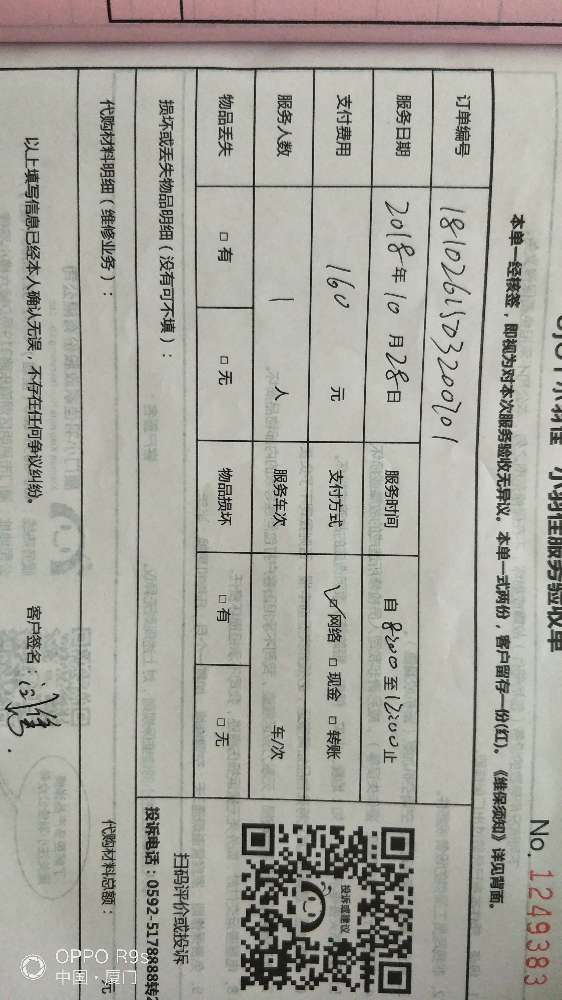 小羽佳 小羽佳服务验收单
No. 1249383
本单一经接签，即视为对本次服务验收无异议。本单一式两份，客户留存一份(红)。《维保须知》详见背面。
订单编号 1810261503200701
服务日期 2018年10月28日 服务时间 自8:00至12:00止
支付费用 160 元 支付方式 □网络 □现金 □转账
服务人数 1 人 服务车次 车/次
物品丢失 □有 □无 物品损坏 □有 □无
投诉或建议
扫码评价或投诉
投诉电话：0592-5178888转2
损坏或丢失物品明细（没有可不填）：
代购材料明细（维修业务）： 代购材料总额： 元
以上填写信息已经本人确认无误，不存在任何争议纠纷。 客户签名：
OPPO R9s
中国·厦门